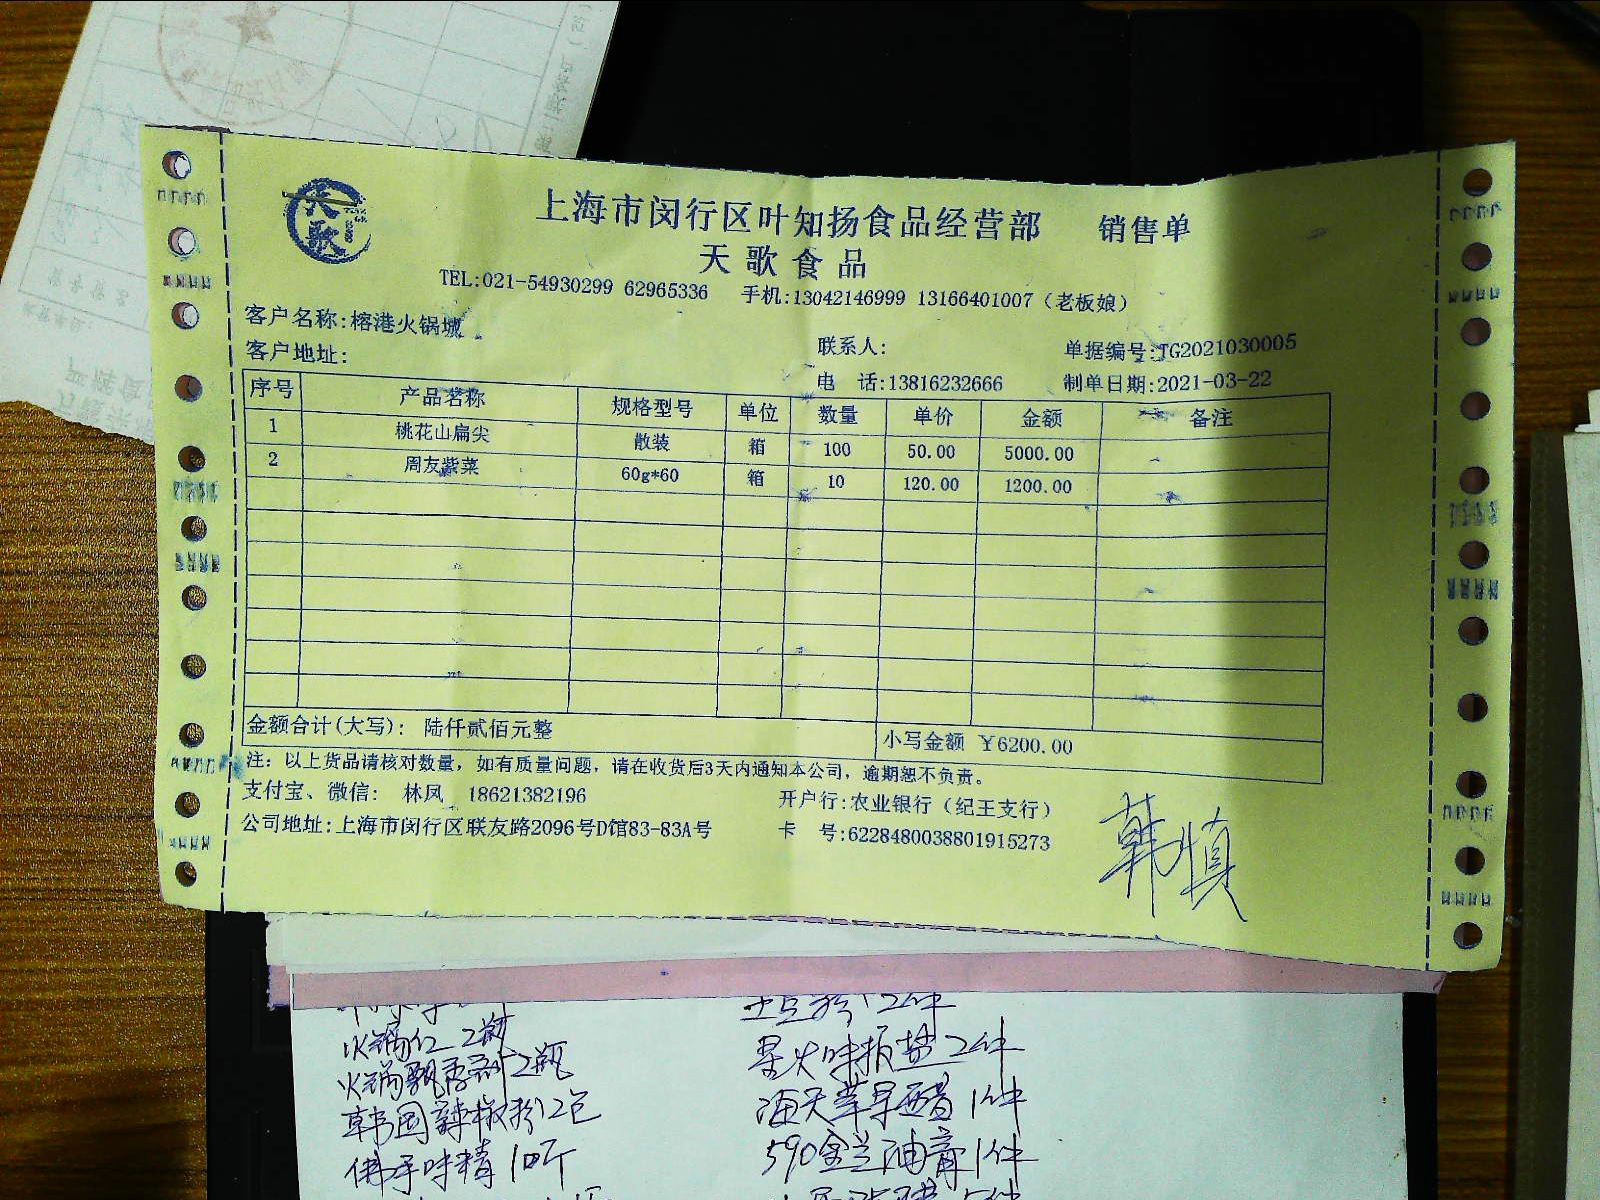 天歌
上海市闵行区叶知扬食品经营部 销售单
天歌食品
TEL:021-54930299 62965336 手机:13042146999 13166401007（老板娘）
客户名称:榕港火锅城
联系人: 单据编号:TG2021030005
客户地址:
电 话:13816232666 制单日期:2021-03-22
序号 产品名称 规格型号 单位 数量 单价 金额 备注
1 桃花山扁尖 散装 箱 100 50.00 5000.00
2 周友紫菜 60g*60 箱 10 120.00 1200.00
金额合计(大写): 陆仟贰佰元整 小写金额 ￥6200.00
注: 以上货品请核对数量，如有质量问题，请在收货后3天内通知本公司，逾期恕不负责。
支付宝、微信: 林凤 18621382196 开户行:农业银行（纪王支行）
公司地址:上海市闵行区联友路2096号D馆83-83A号 卡 号:6228480038801915273
韩慎
火锅红 2瓶
火锅飘香剂 2瓶
韩国辣椒粉 12包
佛手味精 10斤
2件
星火味极盐 2件
海天草草醋 1件
590金兰油膏 1件